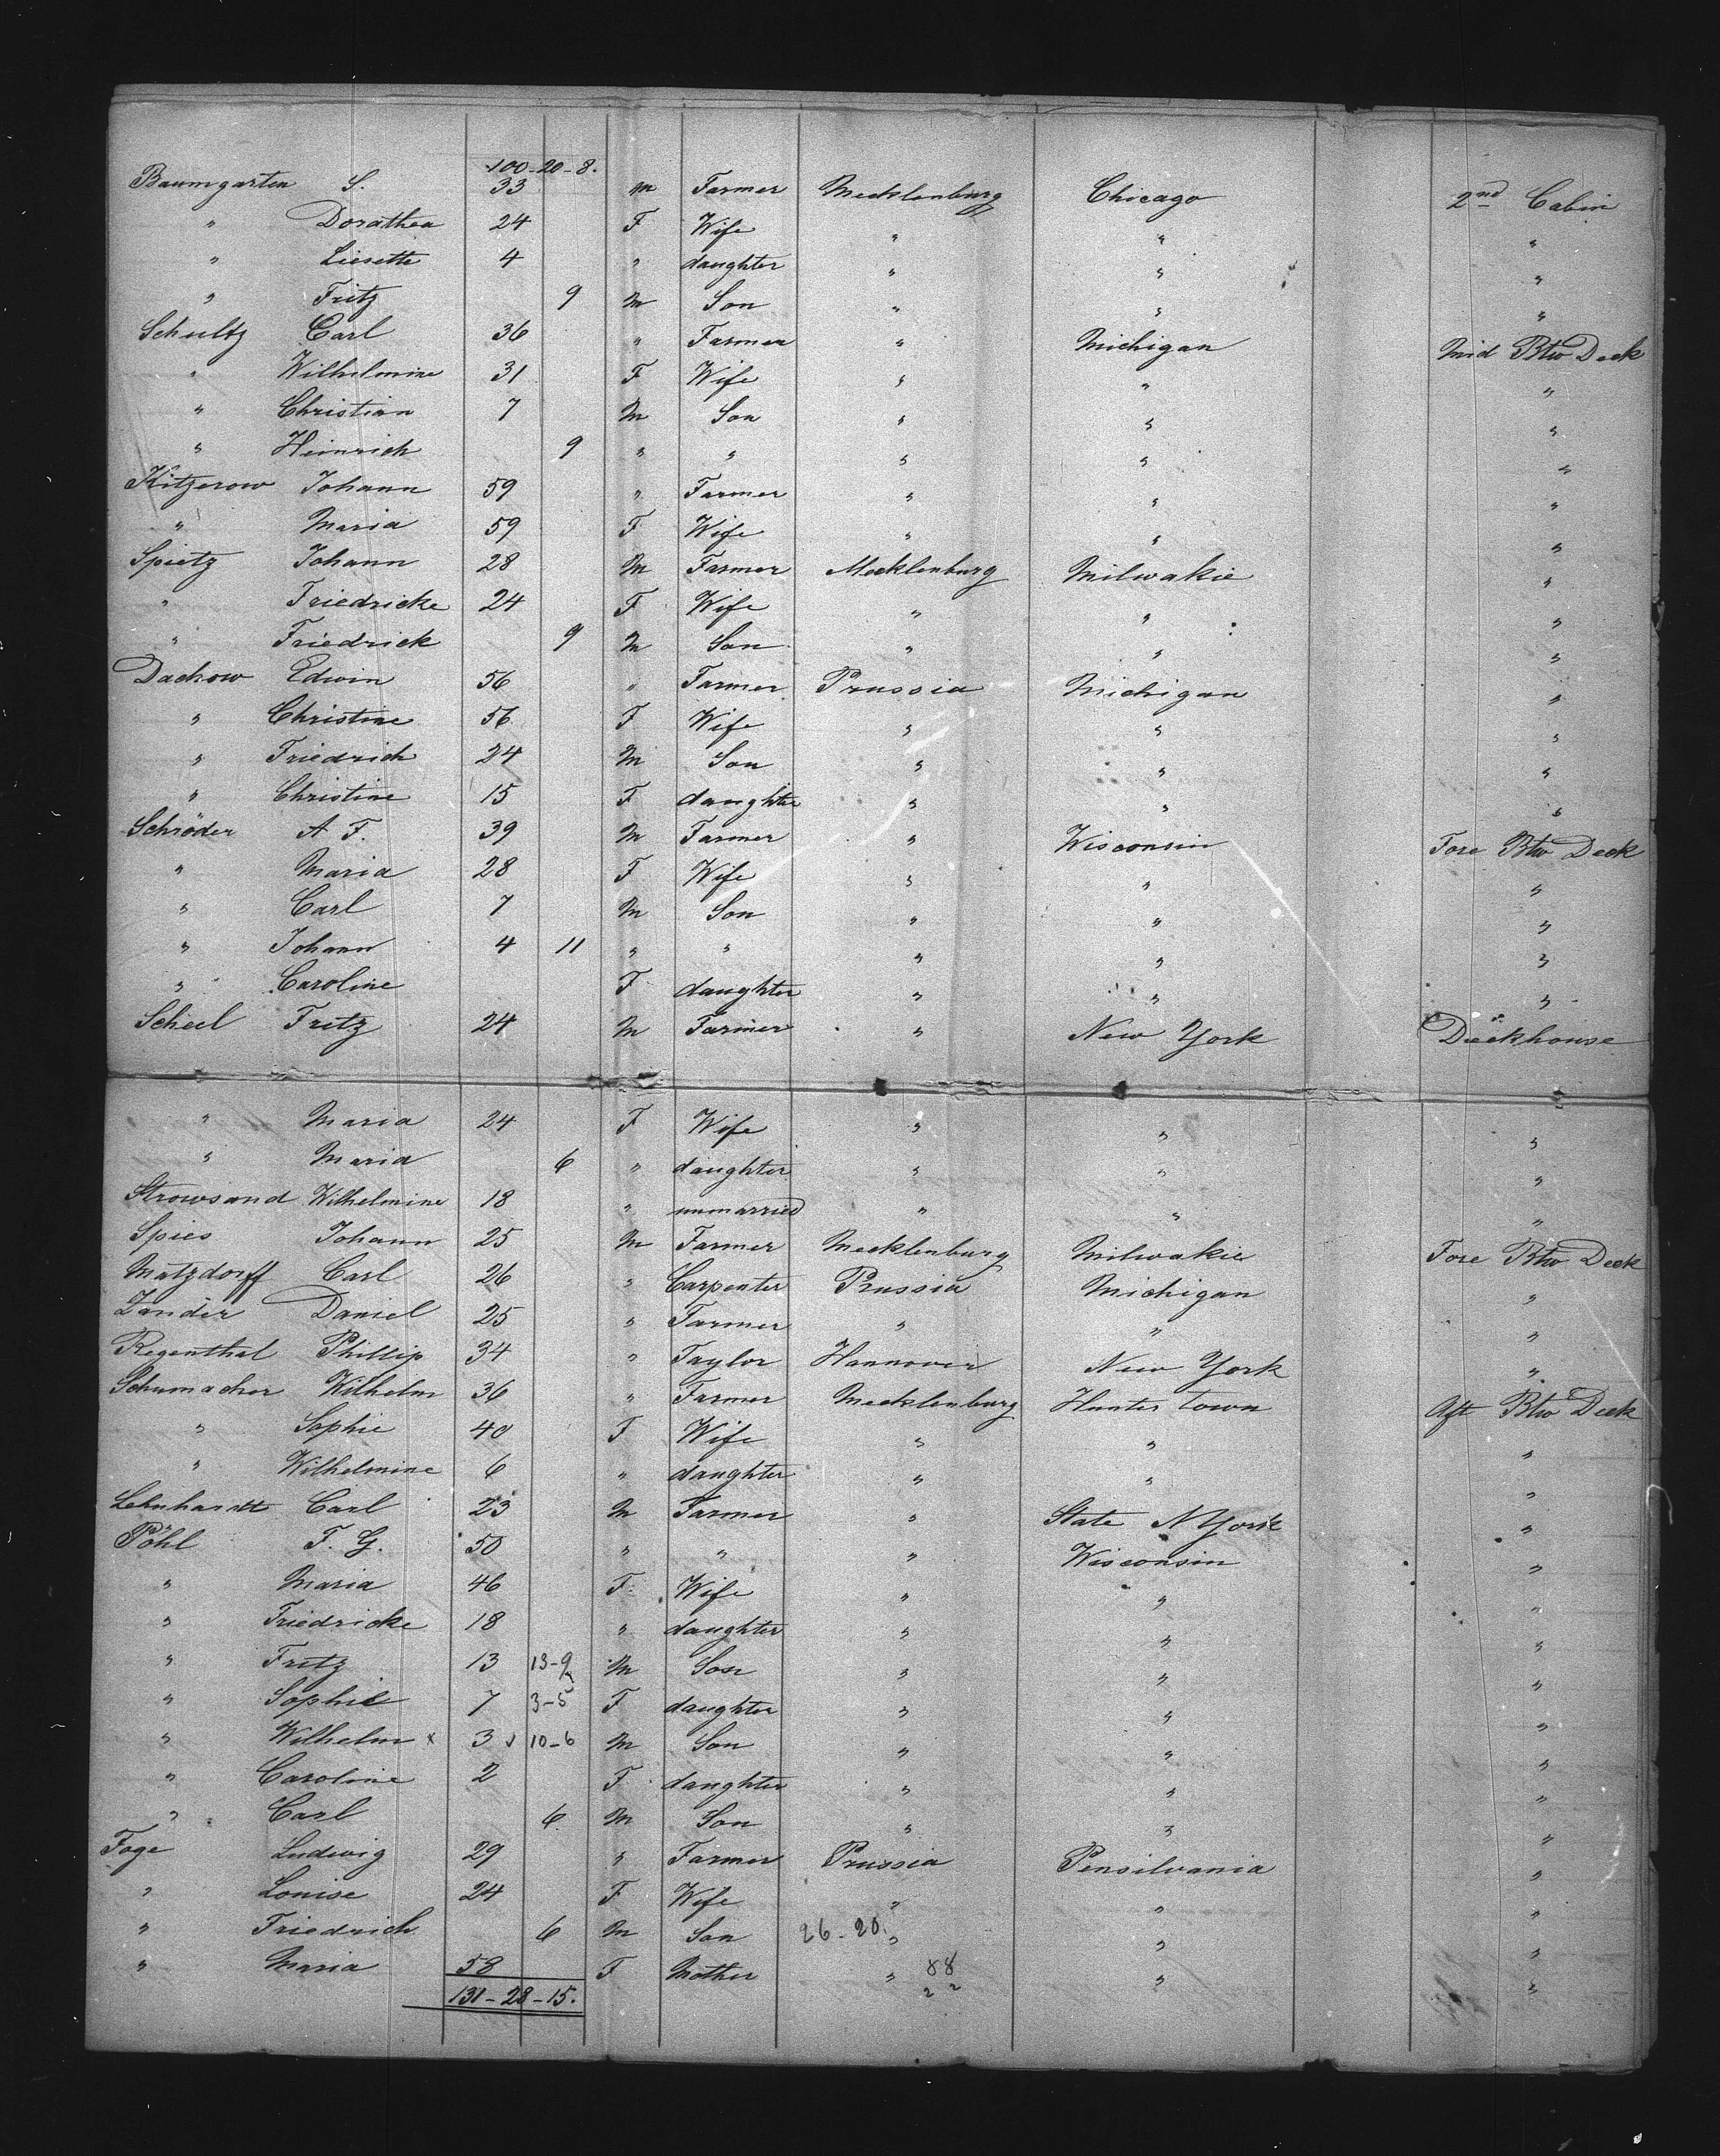 100-20-8.
Baumgarten S. 33 M Farmer Mecklenburg Chicago 2nd Cabin
" Dorathea 24 F Wife " " "
" Liesette 4 " daughter " " "
" Fritz 9 M Son " " "
Schultz Carl 36 " Farmer " Michigan Mid Btw Deck
" Wilhelmine 31 F Wife " " "
" Christian 7 M Son " " "
" Heinrich 9 " " " " "
Kitzerow Johann 59 " Farmer " " "
" Maria 59 F Wife " " "
Spietz Johann 28 M Farmer Mecklenburg Milwakie "
" Friedricke 24 F Wife " " "
" Friedrick 9 M Son " " "
Dachow Edwin 56 " Farmer Prussia Michigan "
" Christine 56 F Wife " " "
" Friedrich 24 M Son " " "
" Christine 15 F daughter " " "
Schröder A F. 39 M Farmer " Wisconsin Fore Btw Deck
" Maria 28 F Wife " " "
" Carl 7 M Son " " "
" Johann 4 11 " " " " "
" Caroline F daughter " " "
Scheel Fritz 24 M Farmer " New York Deckhouse
" Maria 24 F Wife " " "
" Maria 6 " daughter " " "
Strowsand Wilhelmine 18 " unmarried " " "
Spies Johann 25 M Farmer Mecklenburg Milwakie Fore Btw Deck
Matzdorff Carl 26 " Carpenter Prussia Michigan "
Zander Daniel 25 " Farmer " " "
Regenthal Phillip 34 " Taylor Hannover New York "
Schumacher Wilhelm 36 " Farmer Mecklenburg Hunter town Aft Btw Deck
" Sophie 40 F Wife " " "
" Wilhelmine 6 " daughter " " "
Lehnhardt Carl 23 M Farmer " State N York "
Pöhl F. G. 50 " " " Wisconsin "
" Maria 46 F Wife " " "
" Friedricke 18 " daughter " " "
" Fritz 13 13-9 M Son " " "
" Sophie 7 3-5 F daughter " " "
" Wilhelm x 3 10-6 M Son " " "
" Caroline 2 F daughter " " "
" Carl 6 M Son " " "
Foge Ludwig 29 " Farmer Prussia Pensilvania "
" Louise 24 F Wife " " "
" Friedrich 6 M Son 26-20. " " "
" Maria 58 F Mother " 88 " "
131-28-15. 2 2